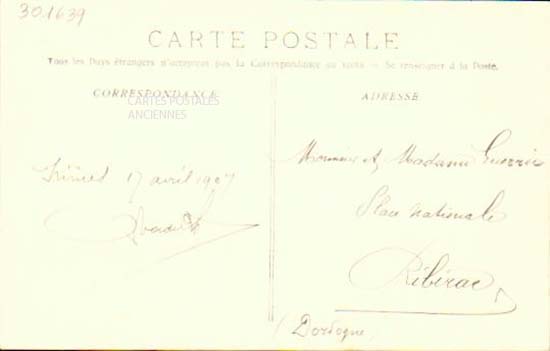 301639
CARTE POSTALE
Tous les Pays étrangers n'acceptent pas la Correspondance au recto. - Se renseigner à la Poste.
CORRESPONDANCE
CARTES POSTALES
ANCIENNES
17 avril 1907
ADRESSE
Monsieur et Madame Guerrier
Place Nationale
Ribérac
Dordogne